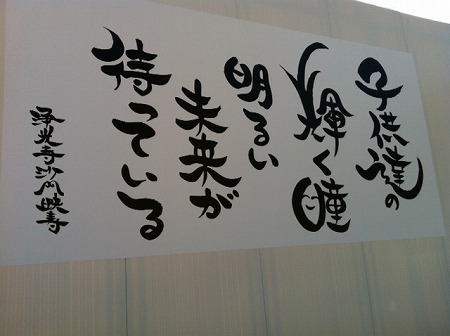 子供達の
輝く瞳
明るい
未来が
待っている
浄光寺沙門映寿